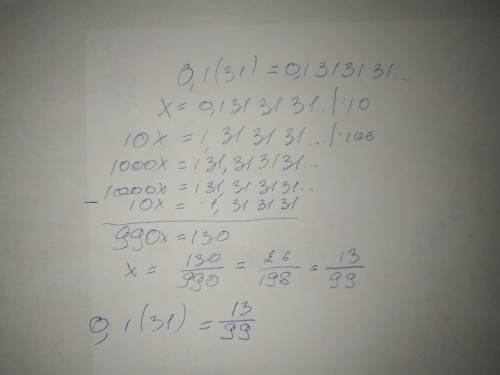 0,1(31) = 0,13131 31...
x = 0,131 31 31... | ·10
10x = 1, 31 31 31... | ·100
1000x = 131,31313 1...
1000x = 131, 31 31 31...
- 10x = 1, 31 31 31
990x = 130
x = 130/990 = 26/198 = 13/99
0,1(31) = 13/99